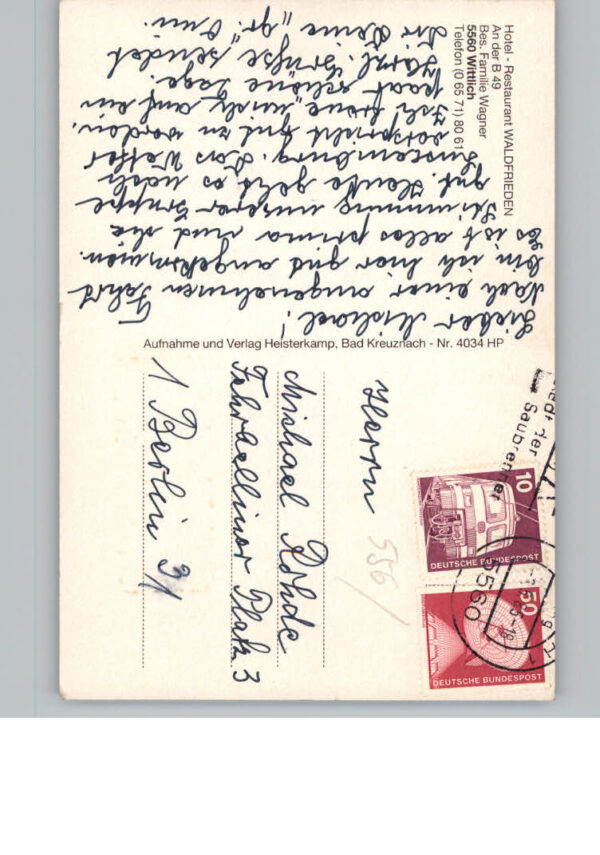 Hotel - Restaurant WALDFRIEDEN
An der B 49
Bes. Familie Wagner
5560 Wittlich
Telefon (0 65 71) 80 61
Lieber Michael!
Nach einer angenehmen Fahrt
bin ich hier gut angekommen.
Es ist alles prima und die
Stimmung unserer Gruppe
gut. Heute geht es nach
Luxemburg. Das Wetter
verspricht gut zu werden.
Ich freue mich auf ein
paar schöne Tage.
Herzl. Grüße sendet
Dir Deine "gr." Omi.
Aufnahme und Verlag Heisterkamp, Bad Kreuznach - Nr. 4034 HP
Herrn
Michael Rohde
Fehrbelliner Platz 3
1 Berlin 31
556/
10
DEUTSCHE BUNDESPOST
50
DEUTSCHE BUNDESPOST
der
Saubrenner
5560